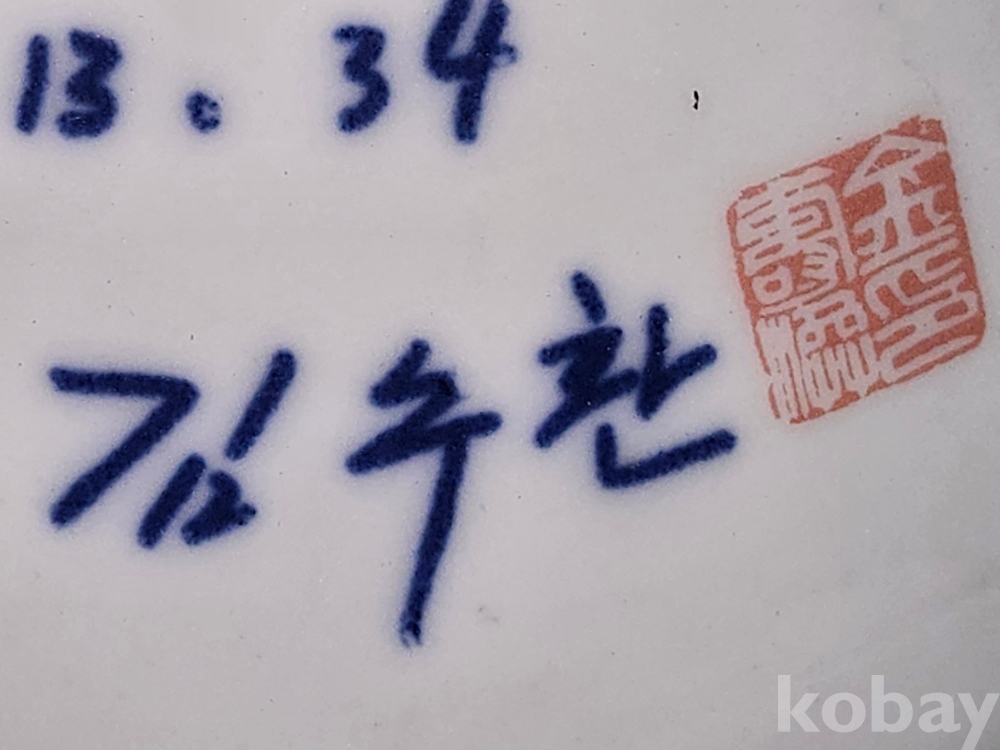 13. 34
김수환
kobay